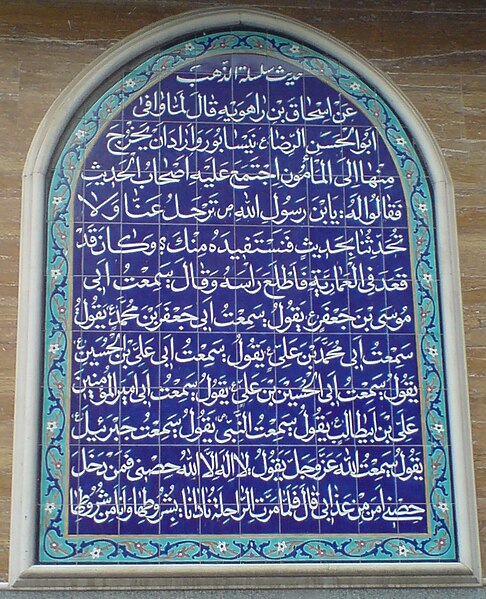 حديث سلسلة الذهب
عن اسحاق بن راهويه قال لما وافى
ابو الحسن الرضا ع نيسابور واراد ان يخرج
منها الى المأمون اجتمع عليه اصحاب الحديث
فقالوا له: يا بن رسول الله ص ترحل عنا ولا
تحدثنا بحديث فنستفيده منك؟ وكان قد
قعد في العمارية فاطلع راسه وقال: سمعت ابى
موسى بن جعفر ع يقول: سمعت ابى جعفر بن محمد ع يقول
سمعت ابى محمد بن على ع يقول: سمعت ابى على بن الحسين ع
يقول: سمعت ابى الحسين بن على ع يقول: سمعت ابى امير المؤمنين
على بن ابيطالب يقول: سمعت النبى يقول: سمعت جبرئيل
يقول: سمعت الله عز وجل يقول: لا اله الا الله حصنى فمن دخل
حصنى امن من عذابى قال فلما مرت الراحلة نادانا: بشروطها وانا من شروطها